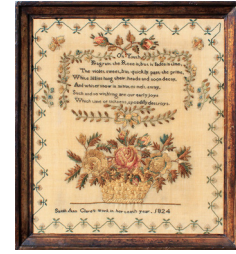 On Youth
Fragrant the Rose is, but it fades in time,
The violet sweet, but quickly past the prime,
White lilies hang their heads and soon decay,
And whiter snow in minutes melt away,
Such and so with'ring are our early joys
Which time or sickness speedily destroys.
Sarah Ann Work in her year, 1824